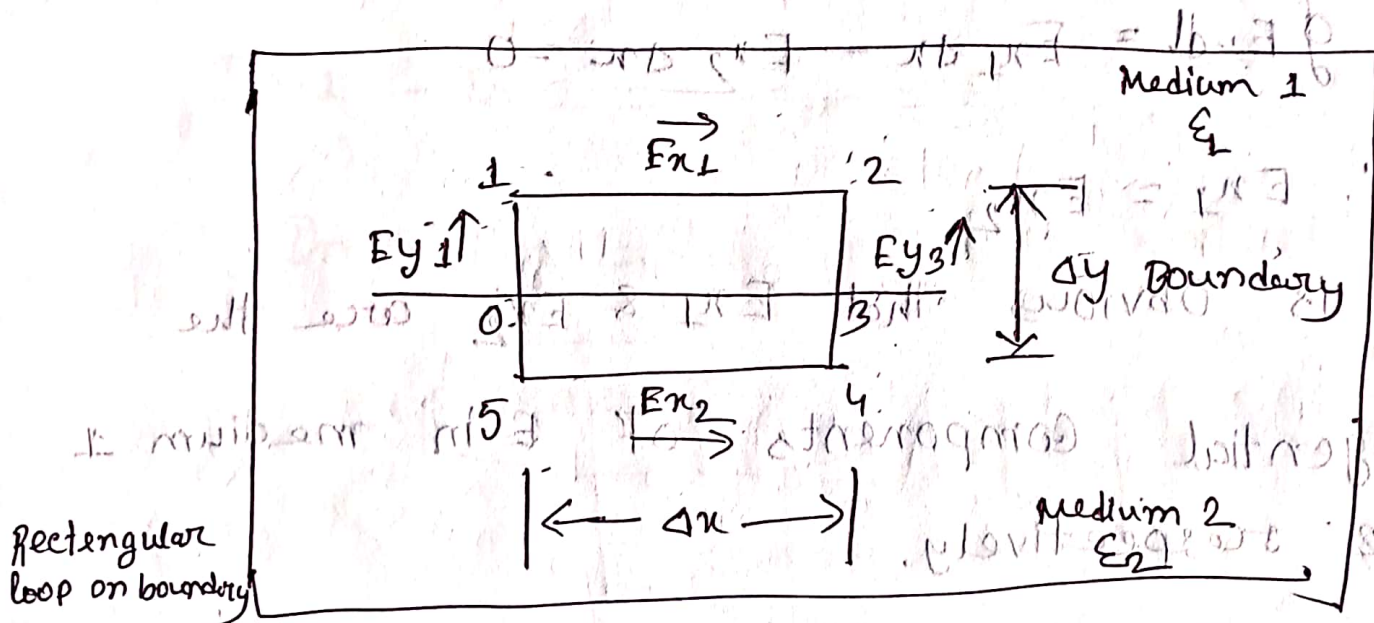 Medium 1
ε1
Ex1
1
2
Ey1
Ey3
Δy Boundary
0
3
5
Ex2
4
Δx
Medium 2
ε2
Rectengular
loop on boundery